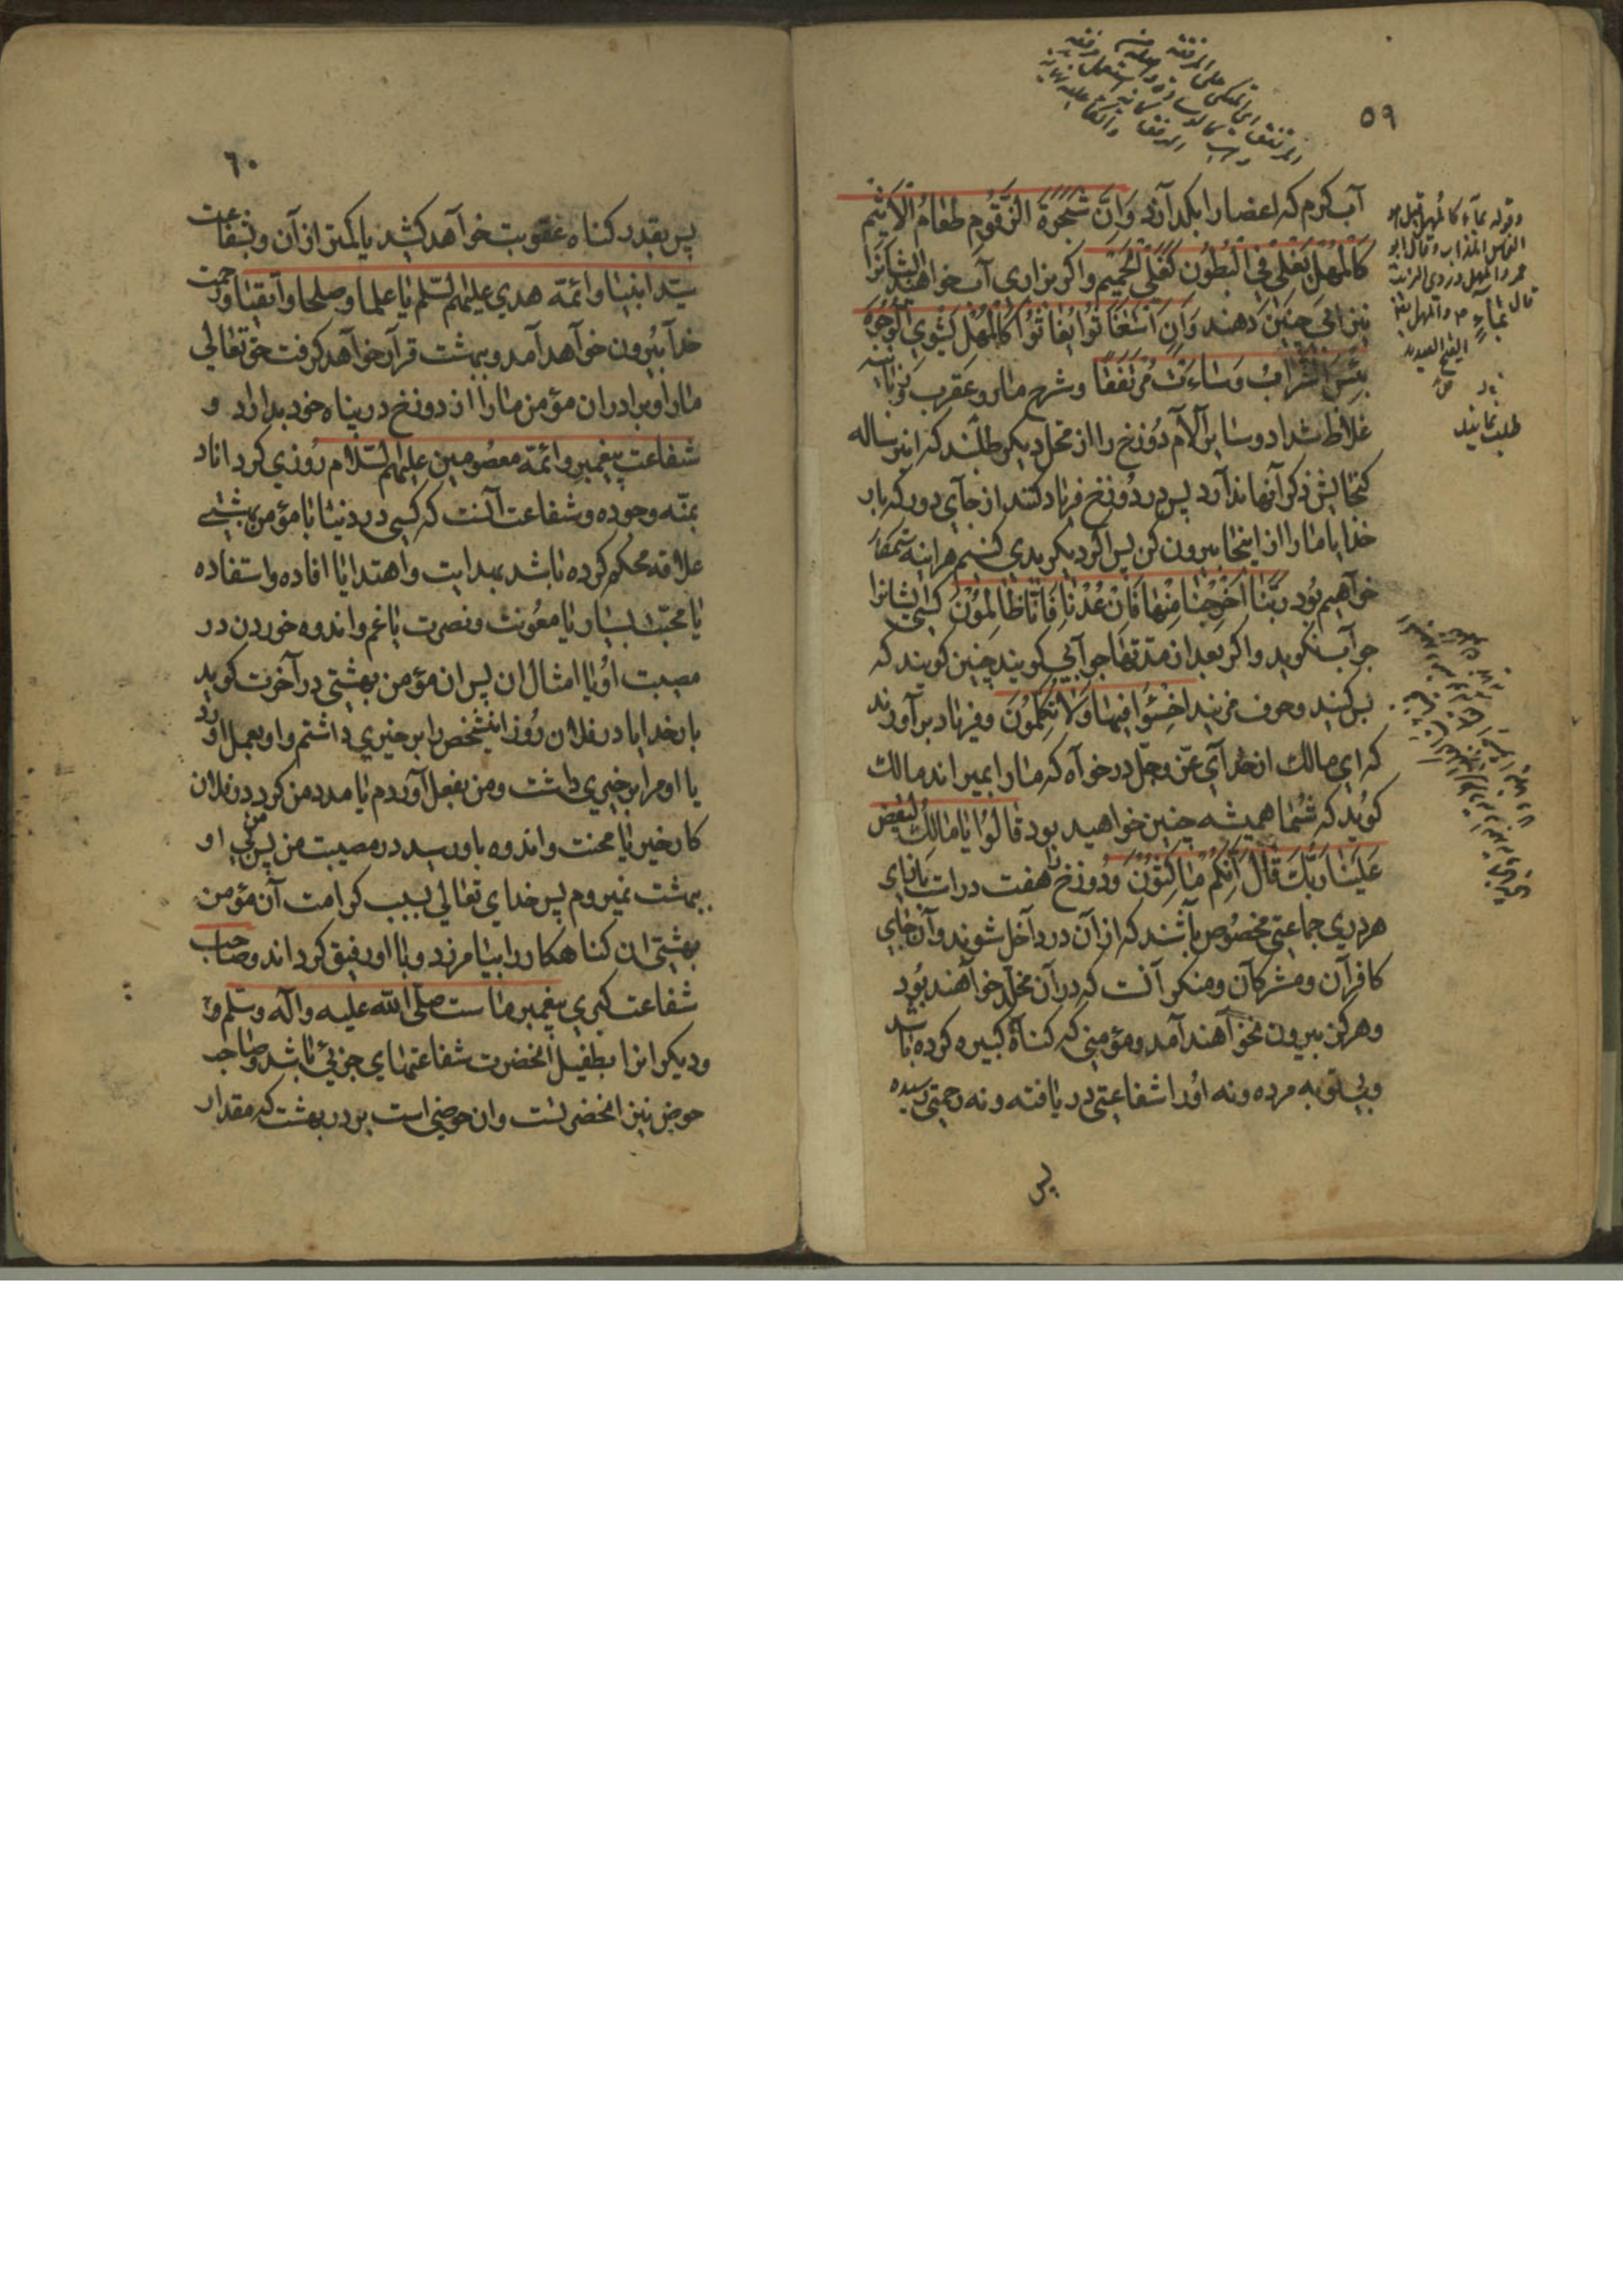 ٥٩
آب گرم که اعضا را بگدازد وَاِنَّ شَجَرَةَ الزَّقُّومِ طَعٰامُ الْاَثيٖمِ
كَالْمُهْلِ يَغْلي فِي الْبُطُونِ كَغَلْيِ الْحَميٖمِ واکر بزاری آب خواهند ایشانرا
نیز آبی چنین دهند وَاِنْ يَسْتَغٖيثُوا يُغٰاثُوا كَالْمُهْلِ يَشْوِي الْوُجُوهَ
بِئْسَ الشَّرٰابُ وَسٰاءَتْ مُرْتَفَقًا وشرح مار وعقرب وزبانیه
غلاظ شداد وسایر آلام دوزخ را از محل دیکر طلبند که این رساله
کنجایش ذکر آنها ندارد پس در دوزخ فریاد کنند از جای دور که بار
خدایا ما را از اینجا بیرون کن پس اکر دیکر بدی کنیم هراینه ستمکار
خواهیم بود رَبَّنٰا اَخْرِجْنٰا مِنْهٰا فَاِنْ عُدْنٰا فَاِنّٰا ظٰالِمُونَ کسی ایشانرا
جواب نکوید واکر بعد از مدتها جوابی کویند چنین کویند که
بس کنید وحرف مزنید اخْسَئُوا فيٖهٰا وَلٰا تُكَلِّمُونَ وفریاد برآورند
که ای مالک از خدای عزّ وجلّ درخواه که ما را بمیراند مالک
کوید که شما همیشه چنین خواهید بود قٰالُوا يٰا مٰالِكُ لِيَقْضِ
عَلَيْنٰا رَبُّكَ قٰالَ اِنَّكُمْ مٰاكِثُونَ ودوزخ را هفت در است که از برای
هر دری جماعتی مخصوص باشند که از آن در داخل شوند وآن جای
کافران ومشرکان ومنکران است که در آن مخلد خواهند بود
وهرکز بیرون نخواهند آمد ومؤمنی که کناه کبیره کرده باشد
وبی توبه مرده ونه او را شفاعتی دریافته ونه رحمتی رسیده
پس
وقوله بماء كالمهل قيل هو
النحاس المذاب وقال ابو
عمرو المهل دردي الزيت
قال
والمهل ايضا
القيح والصديد
طلب نمایند
٦٠
پس بقدر کناه عقوبت خواهد کشید یا کمتر از آن وبشفاعت
سید انبیا وائمه هدی علیهم السّلم یا علما وصلحا واتقیا ورحمت
خدا بیرون خواهد آمد وببهشت قرار خواهد کرفت حق تعالی
ما را وبرادران مؤمن ما را از دوزخ در پناه خود بدارد و
شفاعت پیغمبر وائمّه معصومین علیهم السّلام روزی کرداناد
بمنّه وجوده وشفاعت آنست که کسی در دنیا با مؤمن بهشتی
علاقه محکم کرده باشد بهدایت واهتدا یا افاده واستفاده
یا محبت بسیار یا معونت ونصرت یا غم واندوه خوردن در
مصیبت او یا امثال ان پس ان مؤمن بهشتی در آخرت کوید
بار خدایا در فلان روز اینشخص را بر خیری داشتم واو بعمل آورد
یا او مرا بر خیری داشت ومن بفعل آوردم یا مدد من کرد در فلان
کار خیر یا محنت واندوه باو رسید در مصیبت من پس من بی او
ببهشت نمیروم پس خدای تعالی بسبب کرامت آن مؤمن
بهشتی ان کناهکار را بیامرزد وبا او رفیق کرداند وصاحب
شفاعت کبری پیغمبر ماست صلّی الله علیه وآله وسلّم و
ودیکرانرا بطفیل آنحضرت شفاعتهای جزئی باشد وصاحب
حوض نیز آنحضرتست وان حوضی است بر در بهشت که مقدار